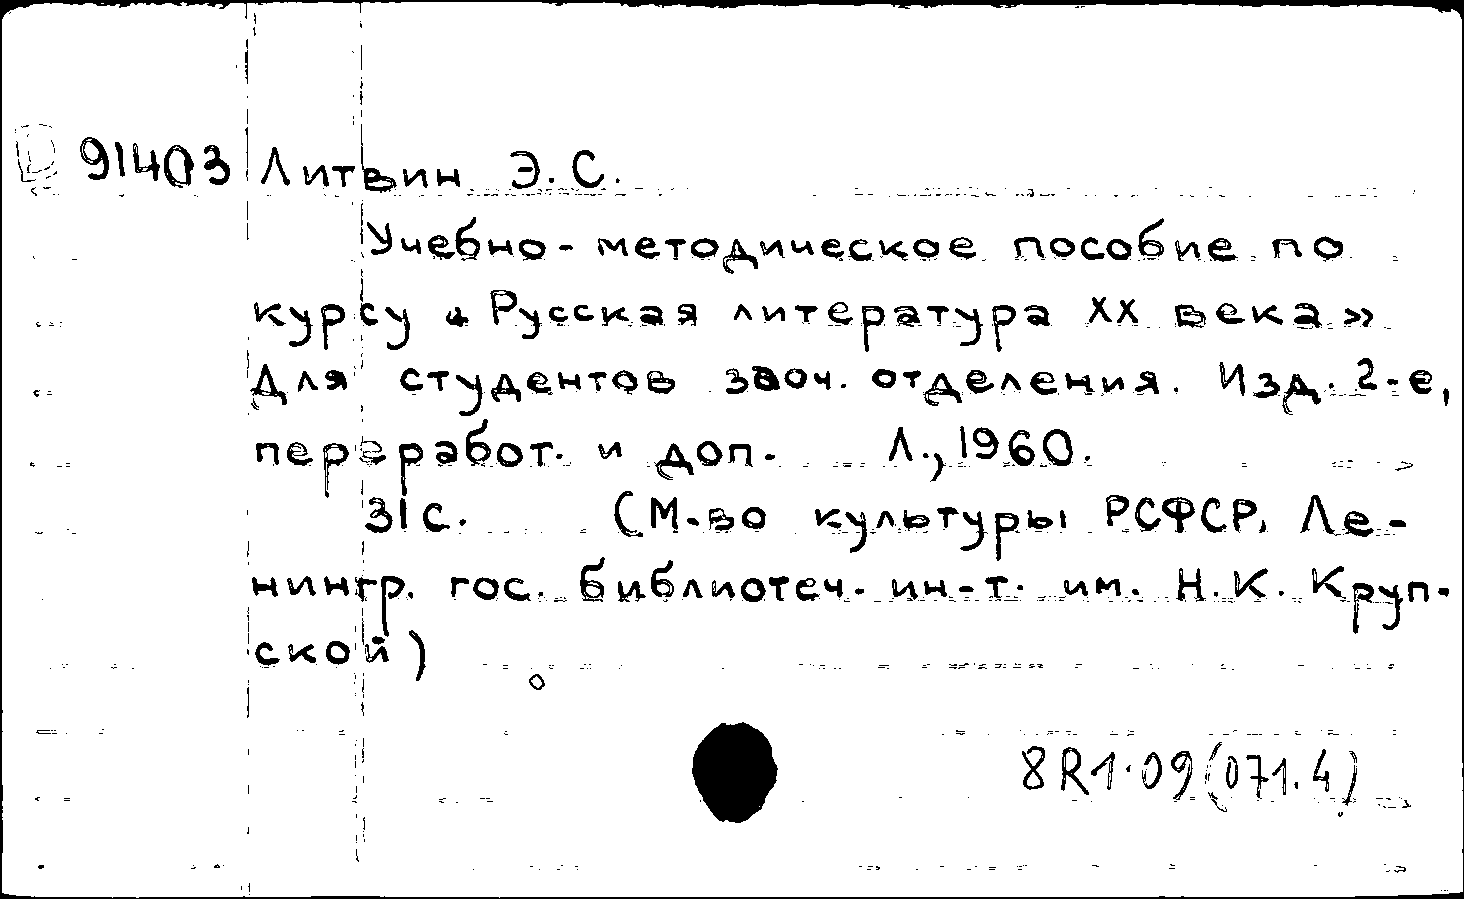 91403 Литвин Э. С.
Учебно-методическое пособие по
курсу «Русская литература XX века»
Для студентов заоч. отделения. Изд. 2-е,
переработ. и доп. Л., 1960.
31 с. (М-во культуры РСФСР, Ле-
нингр. гос. библиотеч. ин-т. им. Н. К. Круп-
ской)
8R1.09(071.4)